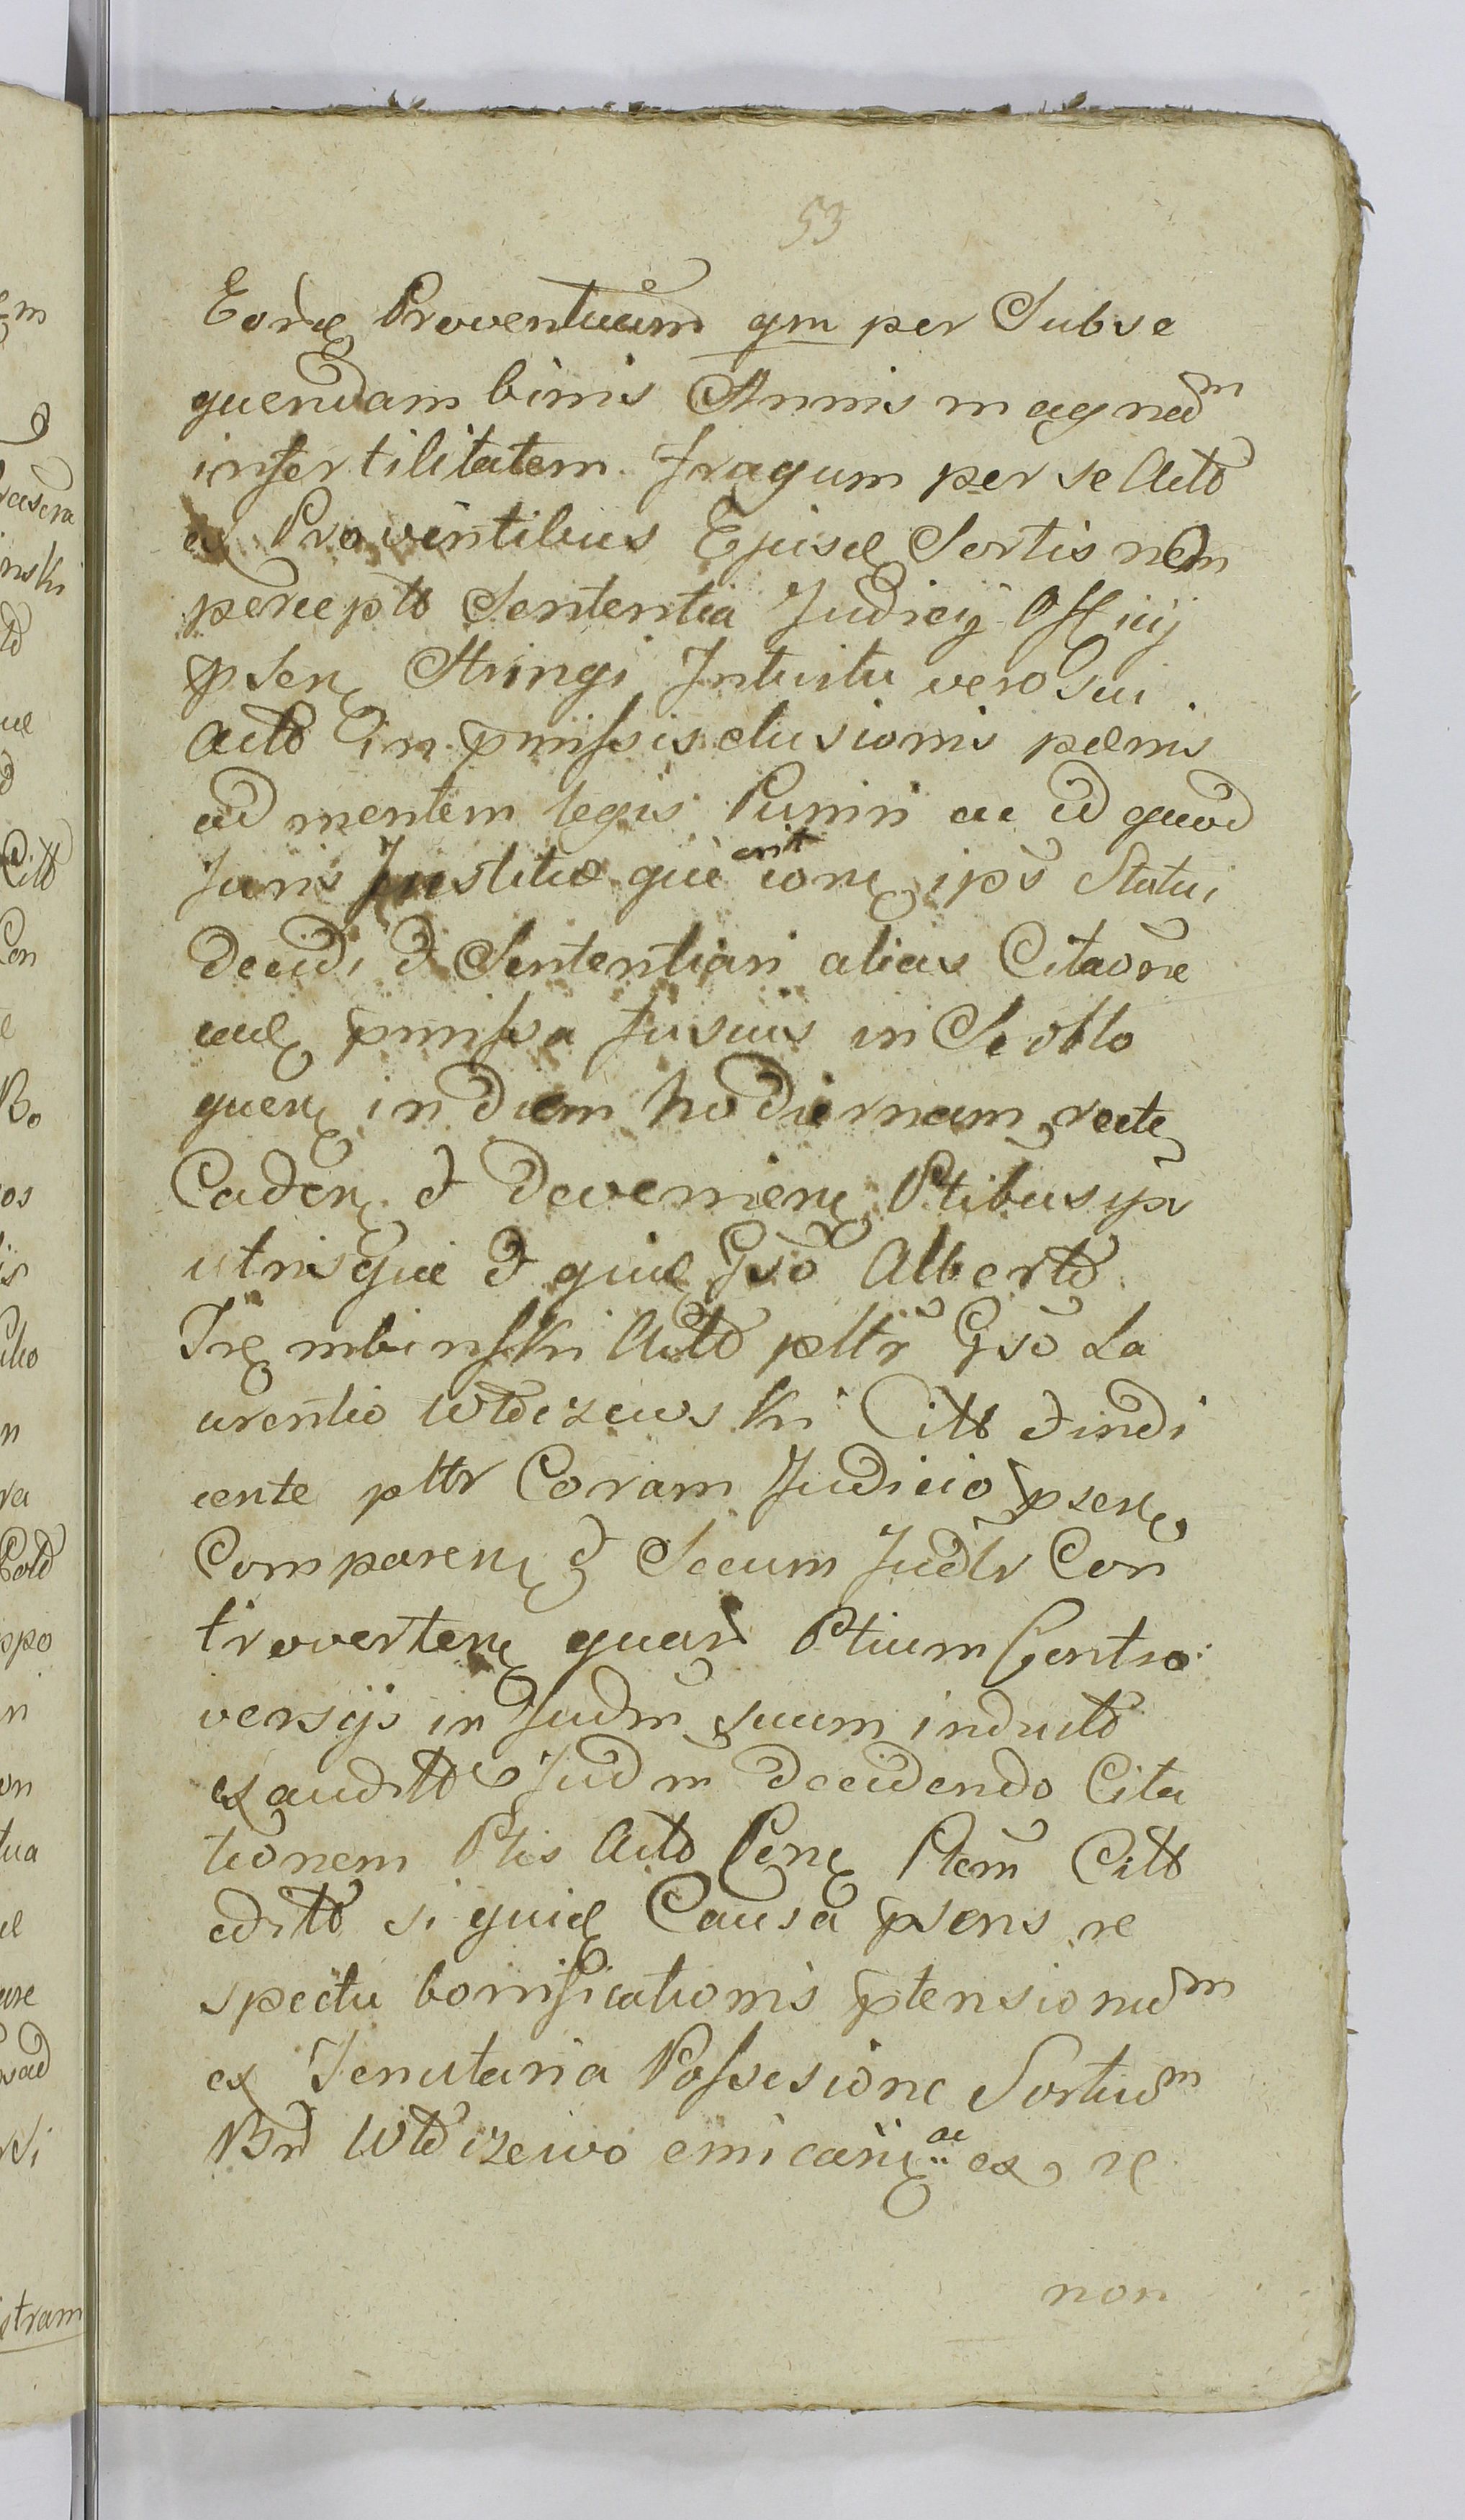 53
Eord Proventuum qm per Subse
quendam binis Annis magnam
infertilitatem frugum per se Acto
ex Proventibus Ejusd Sortis non
percepto Sententia Judicij Officij
psen Stringi Intuitu vero sui
Acto in pmissis elusionis pænis
ad mentem legis Puniri ac id quod
Juris Justitiæ que erit ione ips Statui
Decidi & Sententiari alias Citaone
pmissa fusius in Se obllo
quen in diem hodiernam recte
Caden & Devenien Ptibus ips
utrisque & quid Gso Alberto
Trembinski Acto pltr Gso La
urentio Wtdczewski Citt & indi
cente pltr Coram Judicio psen
Comparen & Secum Judlr Con
troverten quar Ptium Contro
versijs in Judm suum inducto
exaudito Judm decidendo Cita
tionem Ptis Acto Pene Ptem Citt
editto siquid Causa psens re
spectu bonificationis ptensionum
ex Tenutaria Possesione Sortium
Bnd Wtdczewo emican ac ex re
non